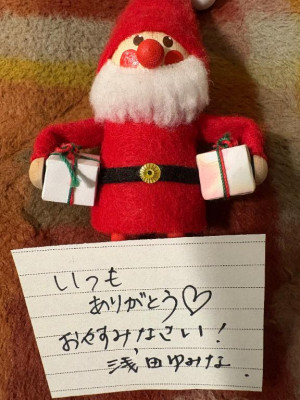 いつも
ありがとう♡
おやすみなさい!
浅田ゆみな